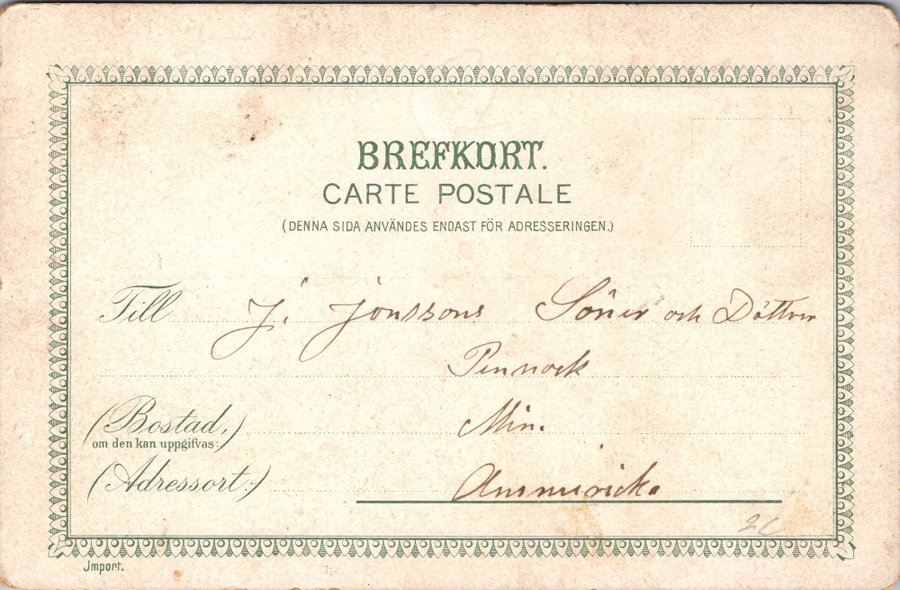 BREFKORT.
CARTE POSTALE
(DENNA SIDA ANVÄNDES ENDAST FÖR ADRESSERINGEN.)
Till J. Jonssons Söner och Döttrar
Pennock
(Bostad,) Min.
om den kan uppgifvas:
(Adressort:) Ammericka
Jmport.